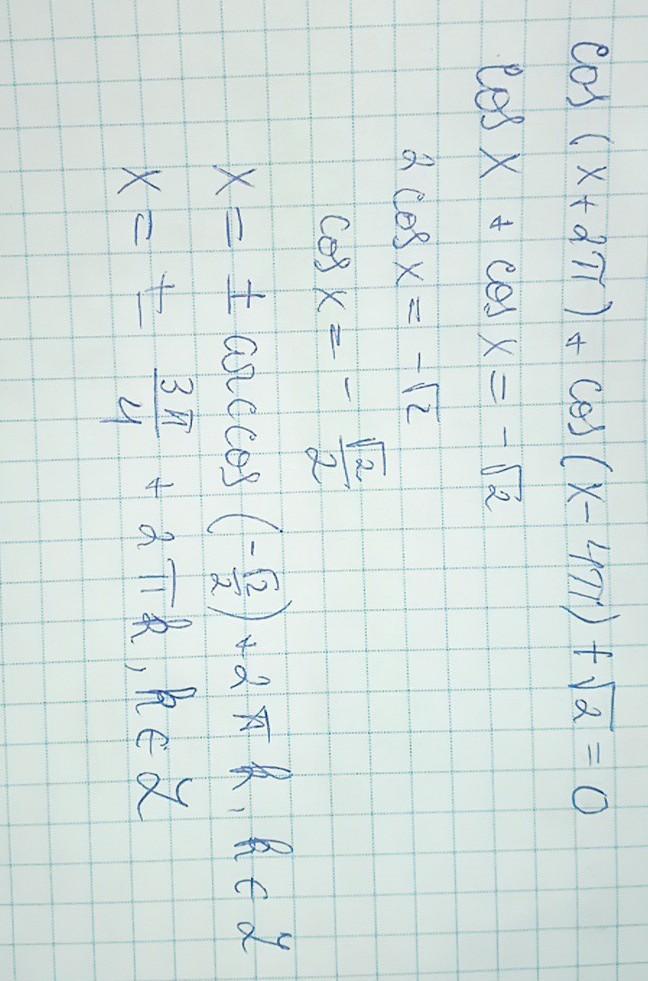 cos(x+2π)+cos(x-4π)+√2=0
cos x + cos x = -√2
2 cos x = -√2
cos x = - √2/2
x = ± arccos (-√2/2)+2πk, k∈Z
x = ± 3π/4 + 2πk, k∈Z